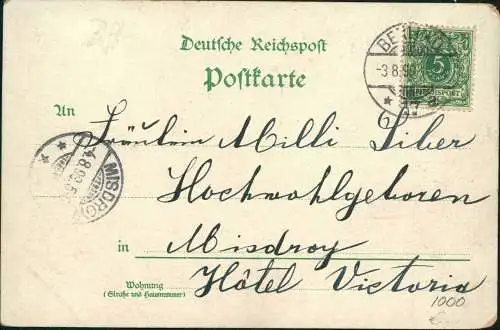 Deutsche Reichspost
Postkarte
BERLIN
-3 8 99
5
REICHSPOST
An
Fräulein Milli Liber
Hochwohlgeboren
in Misdroy
Hôtel Victoria
Wohnung
(Straße und Hausnummer)
MISDROY
4.8.99
1000